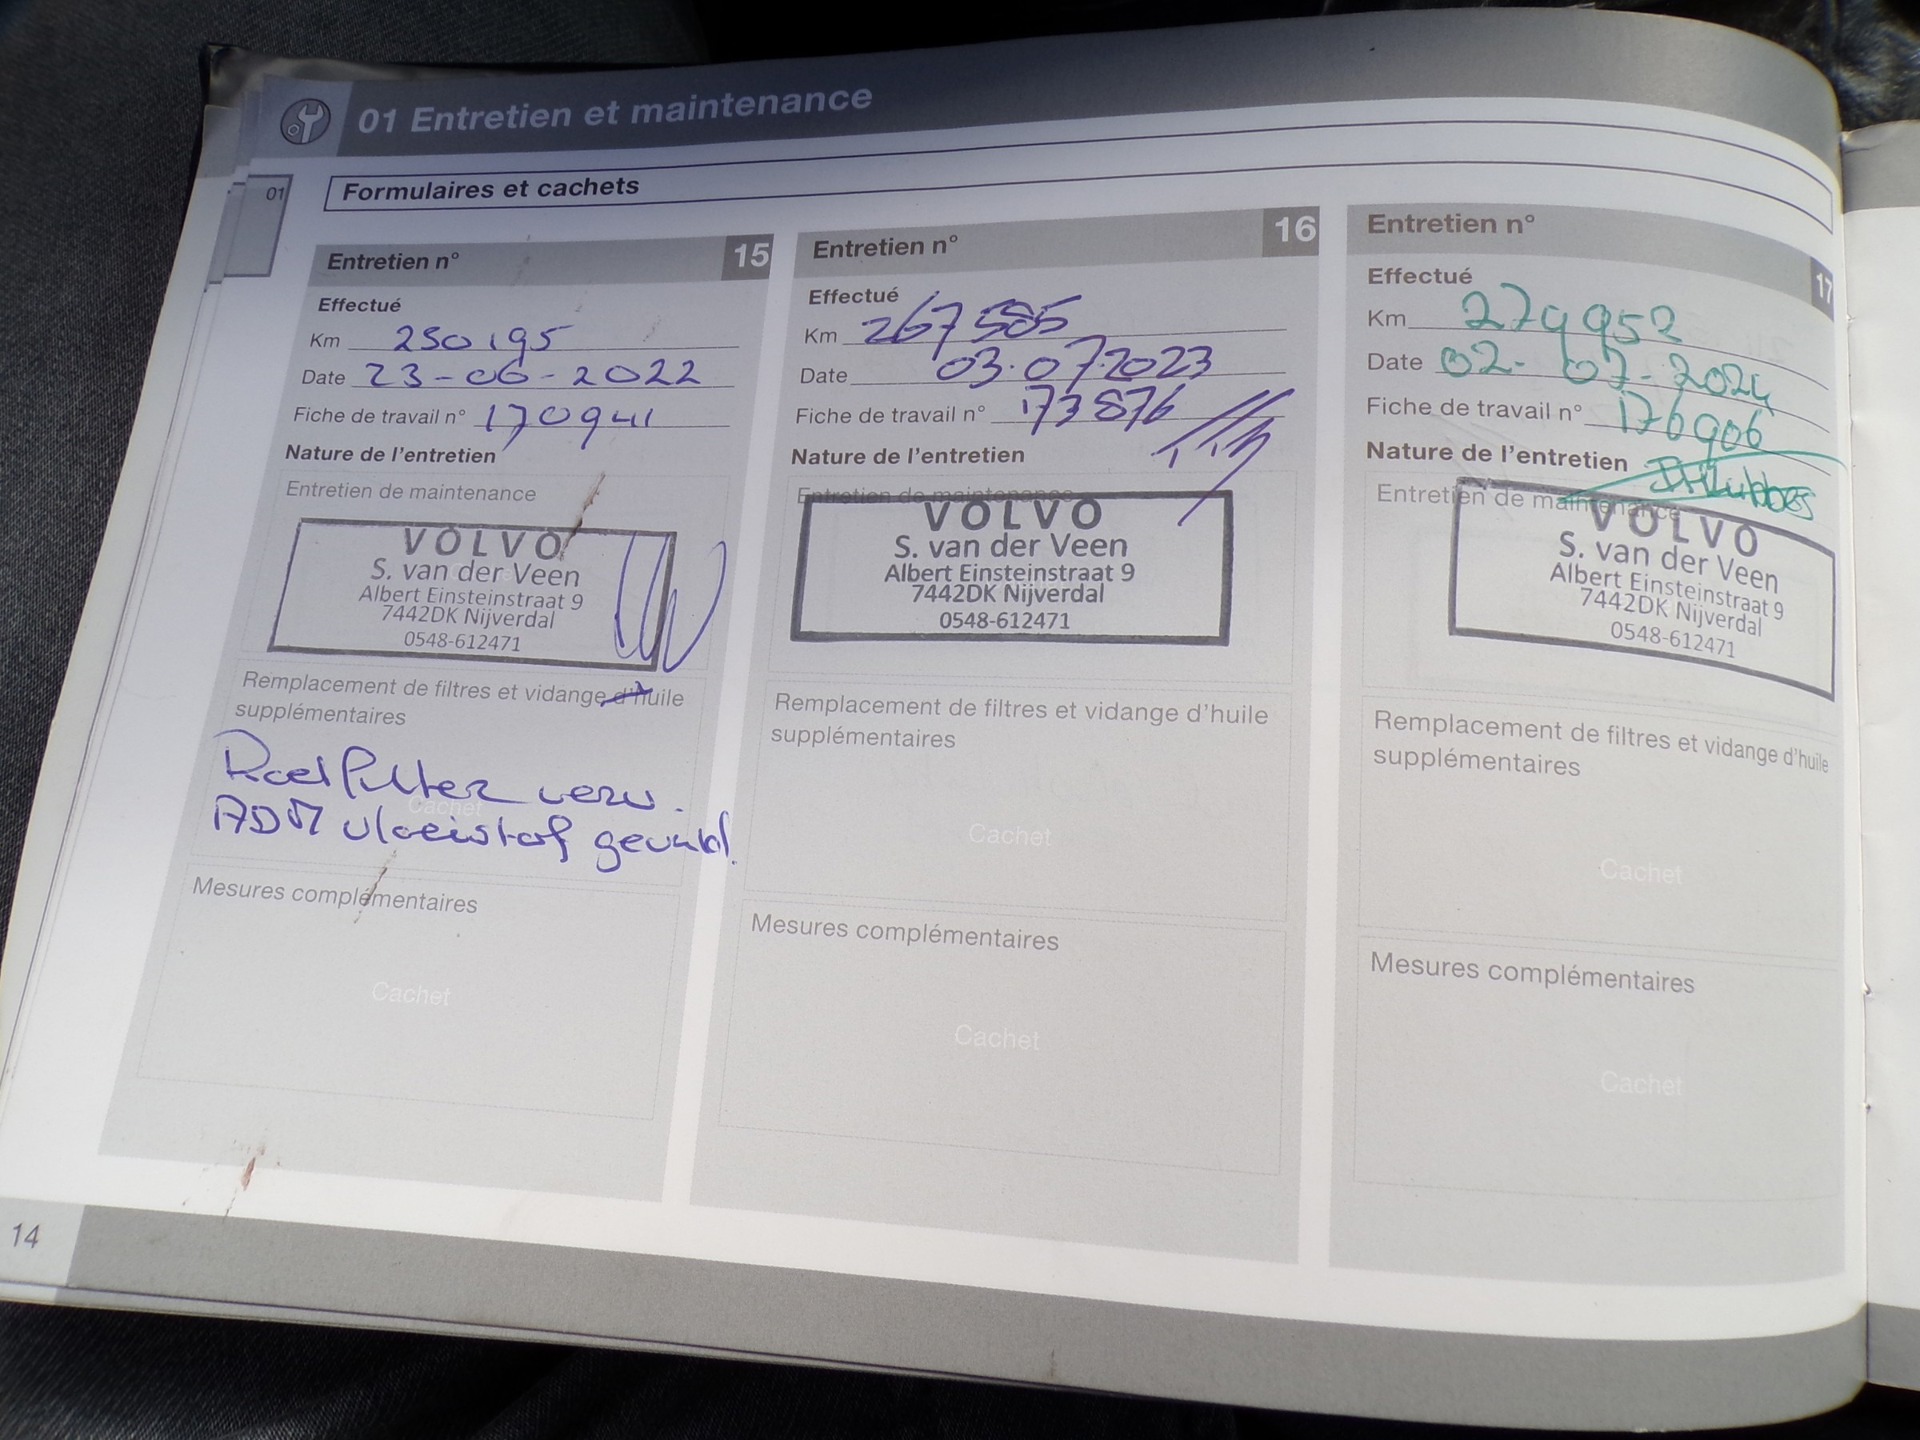 01 Entretien et maintenance
01
Formulaires et cachets
Entretien n° 15
Effectué
Km 250195
Date 23-06-2022
Fiche de travail n° 170941
Nature de l'entretien
Entretien de maintenance
VOLVO
S. van der Veen
Albert Einsteinstraat 9
7442DK Nijverdal
0548-612471
Remplacement de filtres et vidange d'huile
supplémentaires
Roetfilter verv.
ADM vloeistof gevuld.
Cachet
Mesures complémentaires
Cachet
Entretien n° 16
Effectué
Km 267585
Date 03.07.2023
Fiche de travail n° 173876
Nature de l'entretien
Entretien de maintenance
VOLVO
S. van der Veen
Albert Einsteinstraat 9
7442DK Nijverdal
0548-612471
Remplacement de filtres et vidange d'huile
supplémentaires
Cachet
Mesures complémentaires
Cachet
Entretien n° 17
Effectué
Km 279952
Date 02-07-2024
Fiche de travail n° 176906
Nature de l'entretien
Entretien de maintenance
VOLVO
S. van der Veen
Albert Einsteinstraat 9
7442DK Nijverdal
0548-612471
Remplacement de filtres et vidange d'huile
supplémentaires
Cachet
Mesures complémentaires
Cachet
14